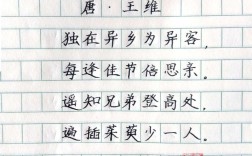 唐·王维
独在异乡为异客，
每逢佳节倍思亲。
遥知兄弟登高处，
遍插茱萸少一人。